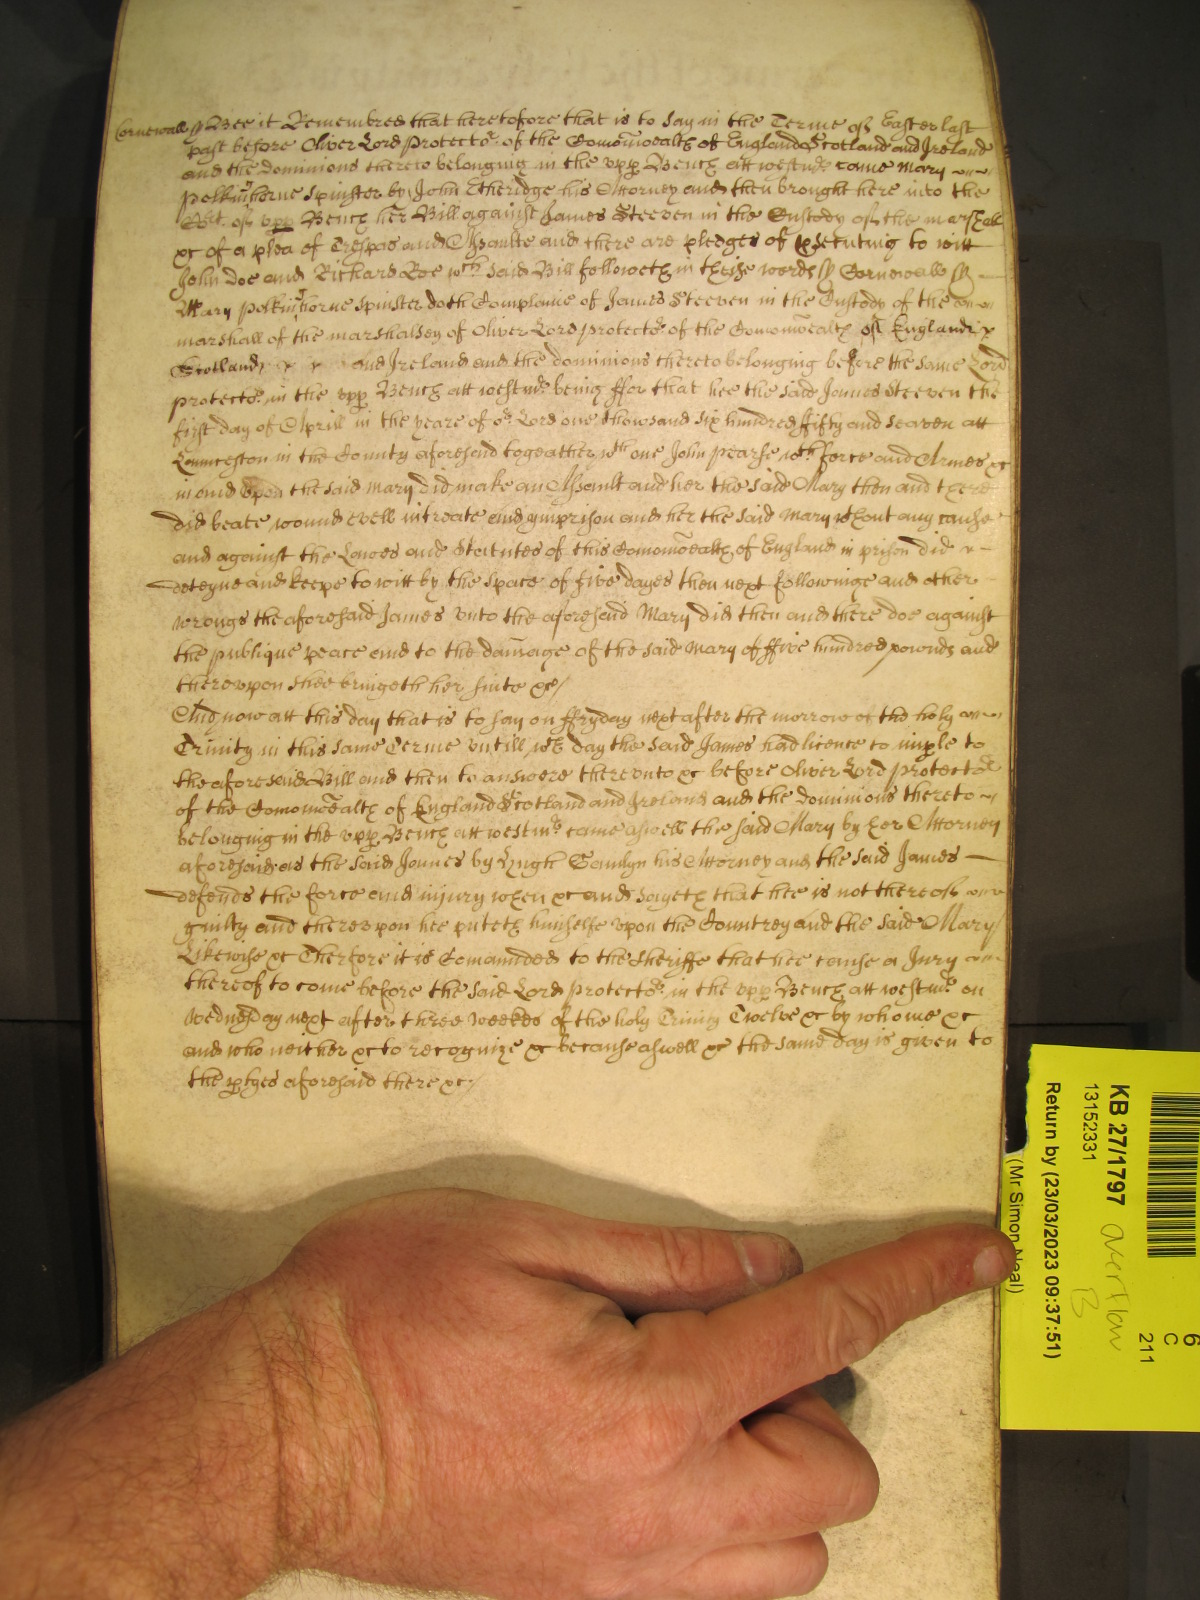 Cornewall ss Bee it Remembred that heretofore that is to say in the Terme of Easter last
past before Oliver Lord Protector of the Comonwealth of England Scotland and Ireland
and the Dominions thereto belonging in the vpp Bench att westmr came Mary
Polkinhorne Spinster by John Etheridge his Attorney and then brought here into the
Court of vpp Bench her Bill against James Steeven in the Custody of the marshall
&c of a plea of Trespas and Assaulte and there are pledges of psecuting to witt
John Doe and Richard Roe wch said Bill followeth in theise words ss Cornewall ss
Mary Polkinhorne Spinster doth Complaine of James Steeven in the Custody of the
marshall of the marshalsey of Oliver Lord protector of the Comonwealth of England
Scotland and Ireland and the dominions thereto belonging before the same Lord
protector in the vpp Bench att westmr being ffor that hee the said James Steeven the
first day of Aprill in the yeare of or Lord one thowsand six hundred fifty and seaven att
Launceston in the County aforesaid togeather wth one John pearse wth force and Armes &c
in and vpon the said Mary did make an Assault and her the said Mary then and there
did beate wound evell intreate and ymprison and her the said Mary wthout any cause
and against the Lawes and Statutes of this Comonwealth of England in prison did
deteyne and keepe to witt by the space of five dayes then next followinge and other
wrongs the aforesaid James vnto the aforesaid Mary did then and there doe against
the publique peace and to the damage of the said Mary of ffive hundred pownds and
therevpon shee bringeth her suite &c/
And now att this day that is to say on ffryday next after the morrow of the holy
Trinity in this same Terme vntill wch day the said James had licence to imple to
the aforesaid Bill and then to answere therevnto &c before Oliver Lord Protector
of the Comonwealth of England Scotland and Ireland and the Dominions thereto
belonging in the vpp Bench att westmr came aswell the said Mary by her Attorney
aforesaid as the said James by Hugh his Attorney and the said James
defends the force and iniury when &c and sayeth that hee is not thereof
guilty and therevpon hee puteth himselfe vpon the Countrey and the said Mary
Likewise &c Therfore it is Comannded to the Sheriffe that hee cause a Jury
thereof to come before the said Lord Protector in the vpp Bench att westmr on
Wednesday next after three weekes of the holy Trinity Twelve &c by whome &c
and who neither &c to recognize &c because aswell &c the same day is given to
the ptyes aforesaid there &c/
KB 27/1797
13152331
Return by (23/03/2023 09:37:51)
(Mr Simon Neal)
overflow
B
6
C
211